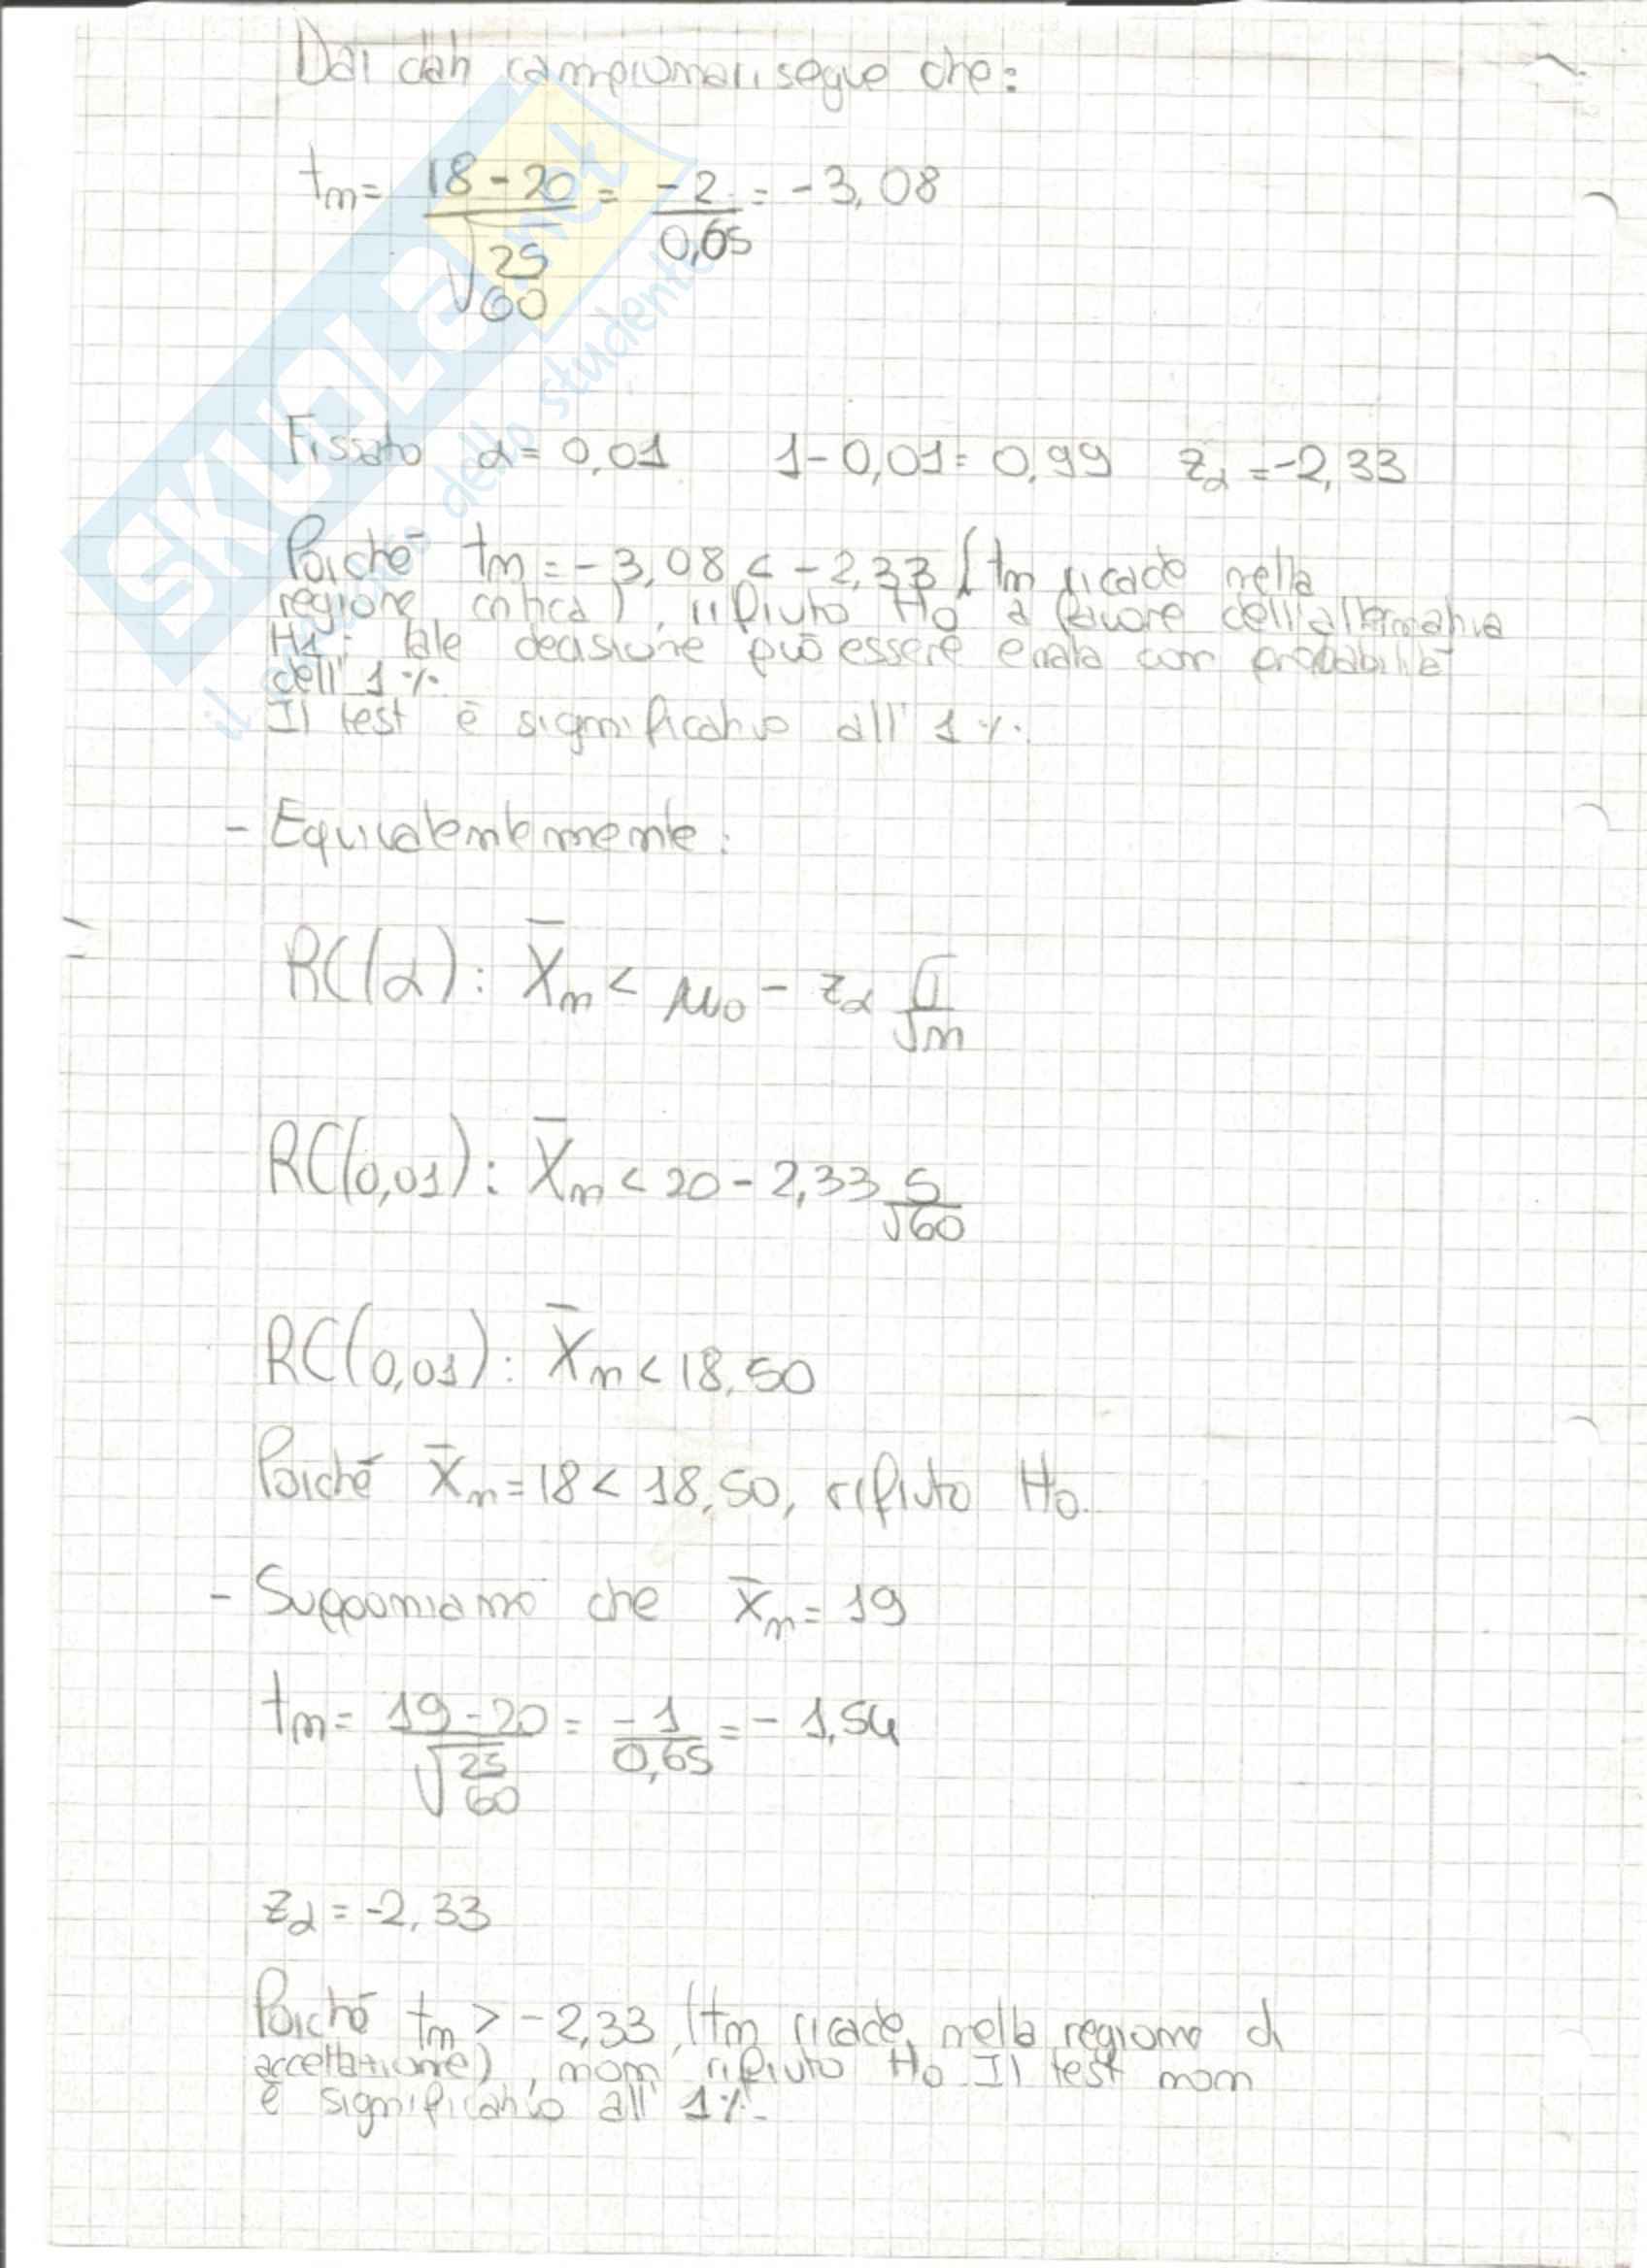 Dai dati campionari segue che:
tn = 18-20 / √25/60 = -2 / 0,65 = -3,08
Fissato α = 0,01 1-0,01 = 0,99 zα = -2,33
Poiché tn = -3,08 < -2,33 (tn ricade nella
regione critica), rifiuto H0 a favore dell'alternativa
H1; tale decisione può essere errata con probabilità
dell'1%.
Il test è significativo all'1%.
- Equivalentemente:
RC(α): X̄n < μ0 - zα σ/√n
RC(0,01): X̄n < 20 - 2,33 5/√60
RC(0,01): X̄n < 18,50
Poiché x̄n = 18 < 18,50, rifiuto H0.
- Supponiamo che x̄n = 19
tn = 19-20 / √25/60 = -1 / 0,65 = -1,54
zα = -2,33
Poiché tn > -2,33 (tn ricade nella regione di
accettazione), non rifiuto H0. Il test non
è significativo all'1%.
SKUOLA.net
il paradiso dello studente